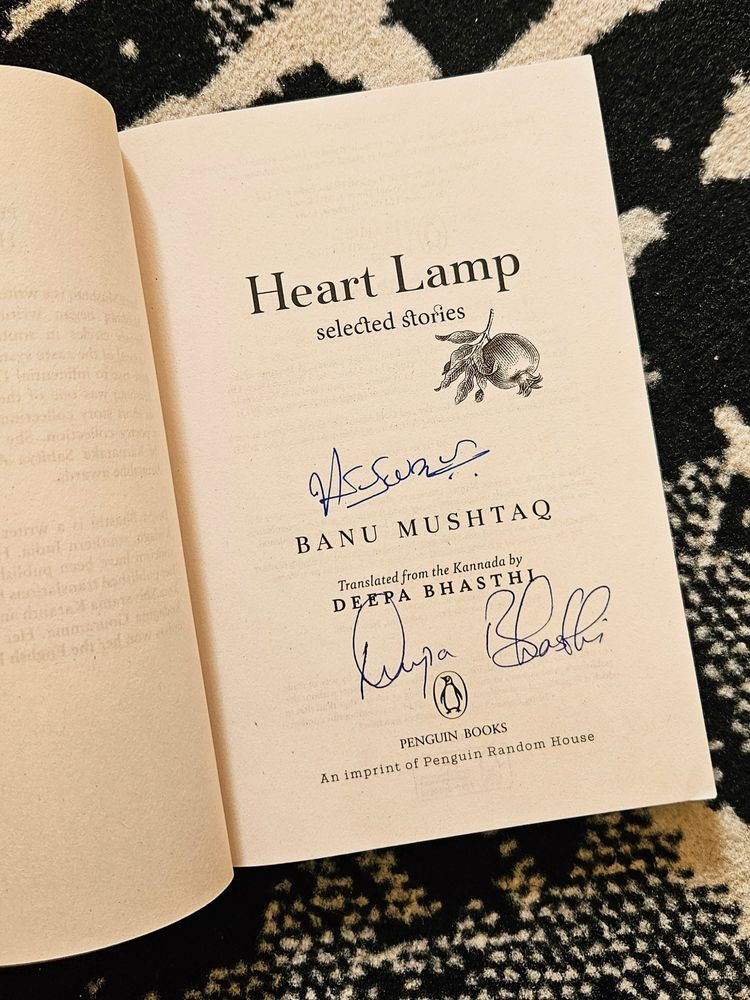 Heart Lamp
selected stories
BANU MUSHTAQ
Translated from the Kannada by
DEEPA BHASTHI
Deepa Bhasthi
PENGUIN BOOKS
An imprint of Penguin Random House